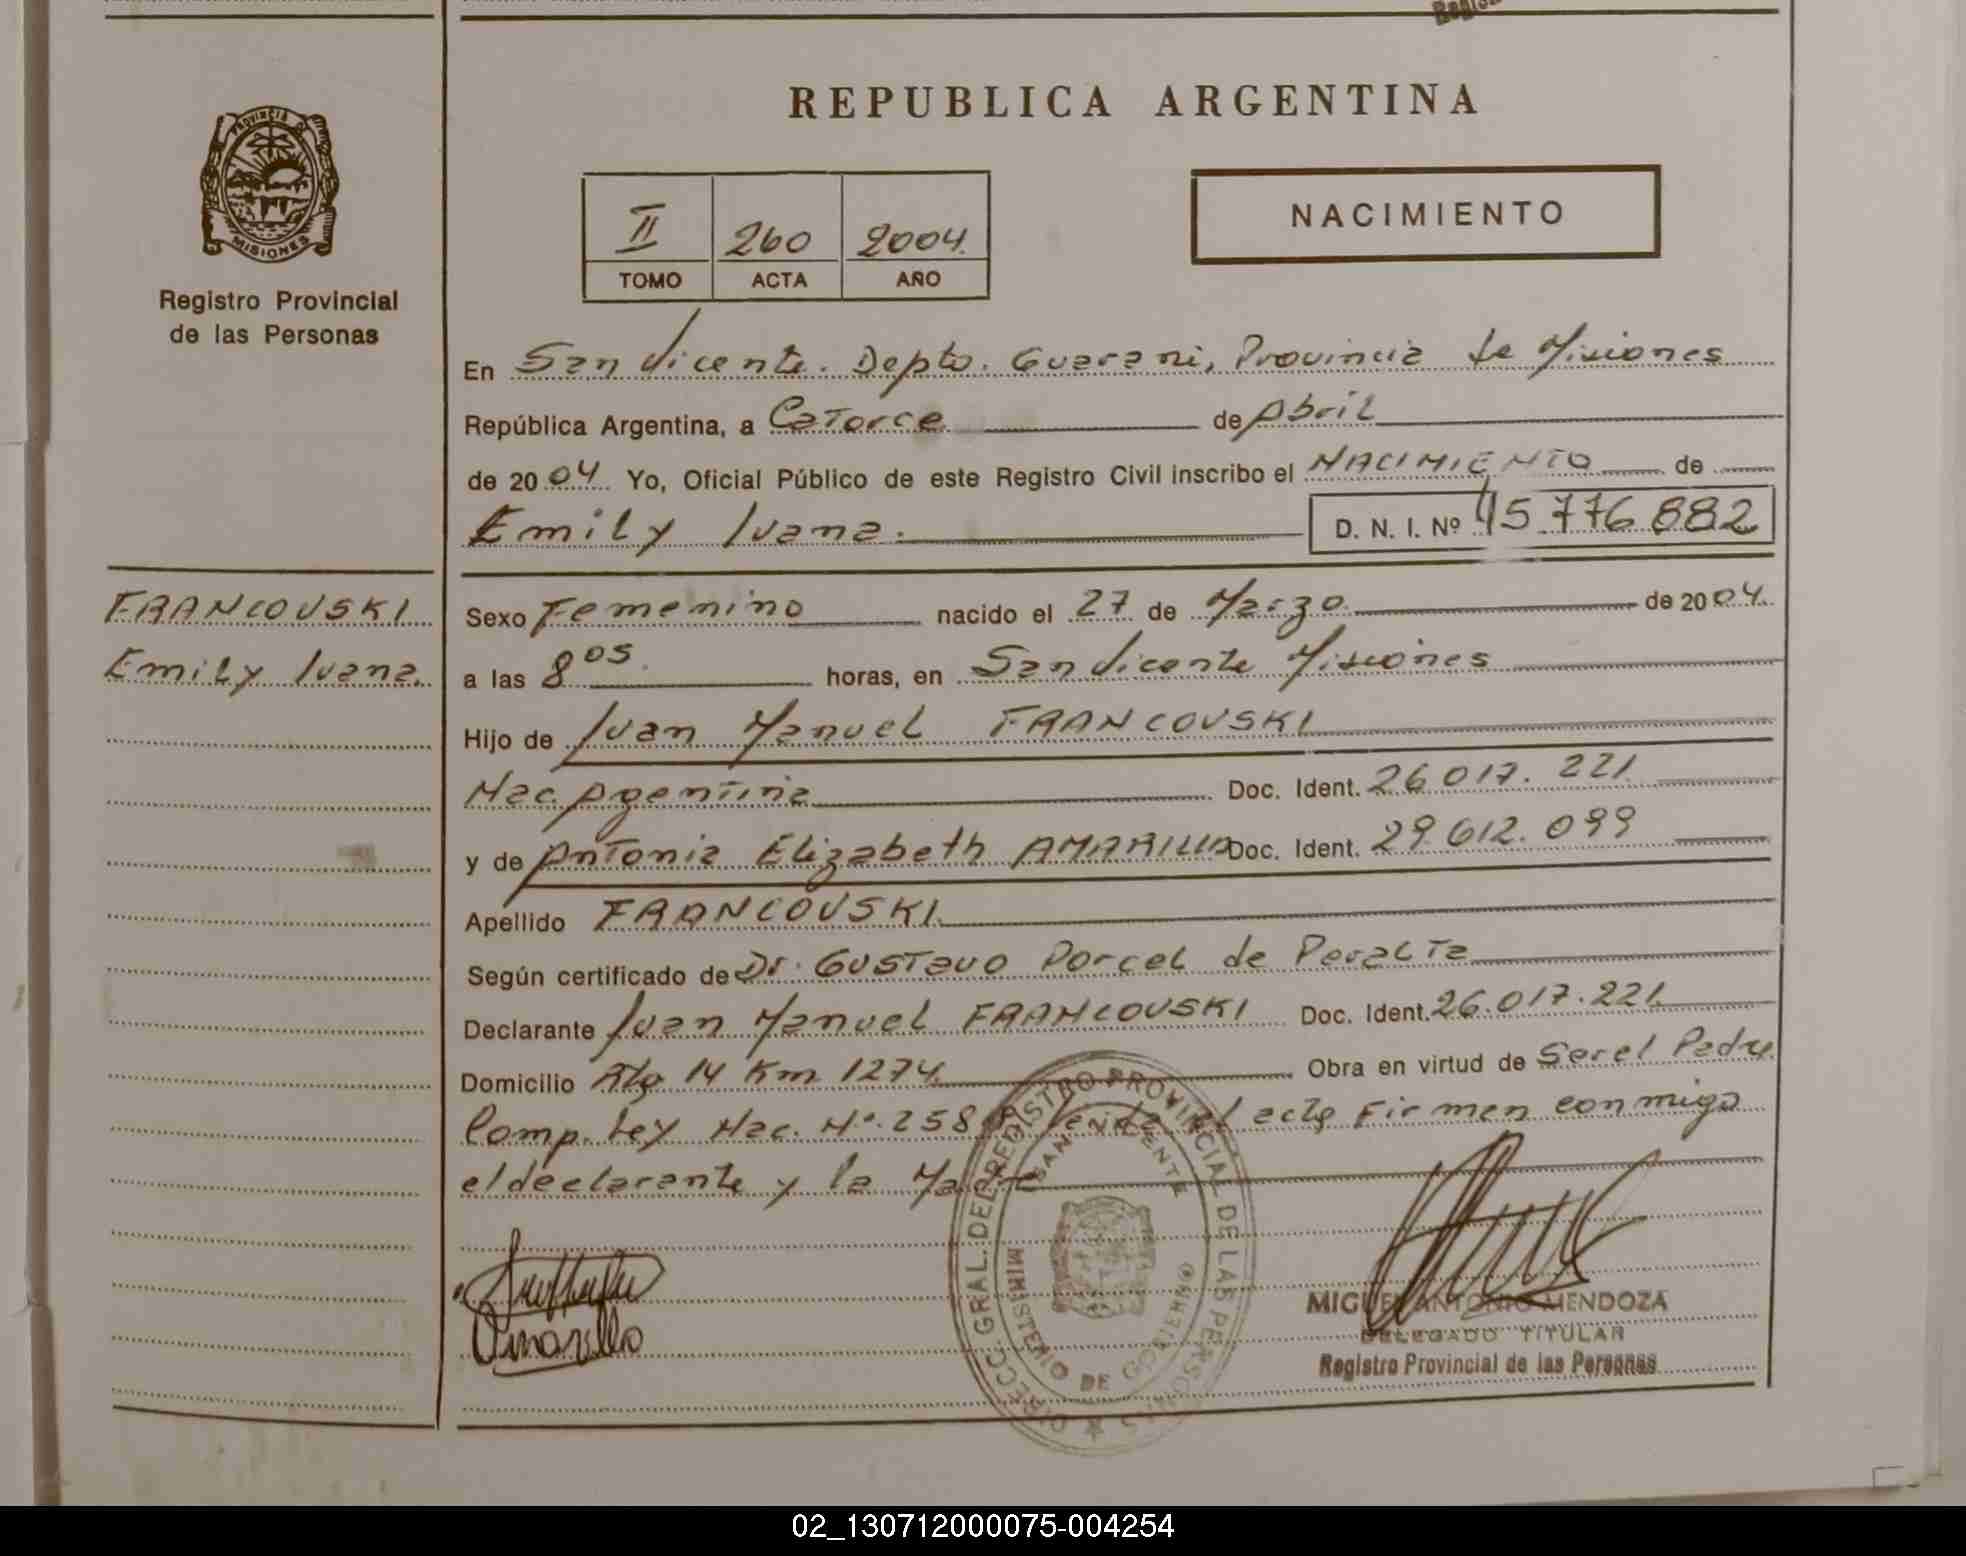 REPUBLICA ARGENTINA
PROVINCIA DE
MISIONES
Registro Provincial
de las Personas
II 260 2004
TOMO ACTA AÑO
NACIMIENTO
En San Vicente. Depto. Guarani, Provincia de Misiones
República Argentina, a Catorce de Abril
de 2004 Yo, Oficial Público de este Registro Civil inscribo el NACIMIENTO de
Emily Ivana. D. N. I. Nº 45776882
FRANCOVSKI
Emily Ivana.
Sexo Femenino nacido el 27 de Marzo de 2004.
a las 8 05. horas, en San Vicente Misiones
Hijo de Juan Manuel FRANCOVSKI
Nac. Agentina Doc. Ident. 26.017.221
y de Antonia Elizabeth AMARILLO Doc. Ident. 29.612.099
Apellido FRANCOVSKI
Según certificado de Dr. Gustavo Porcel de Peralta
Declarante Juan Manuel FRANCOVSKI Doc. Ident. 26.017.221
Domicilio Rta 14 Km 1274. Obra en virtud de Ser el Padre
Comp. Ley Nac. Nº. 258 Leida el acta Firmen conmigo
el declarante y la Madre
Amarillo
DIRECC. GRAL. DEL REGISTRO PROVINCIAL DE LAS PERSONAS
SAN VICENTE
MINISTERIO DE GOBIERNO
MIGUEL ANTONIO MENDOZA
DELEGADO TITULAR
Registro Provincial de las Personas
02_130712000075-004254